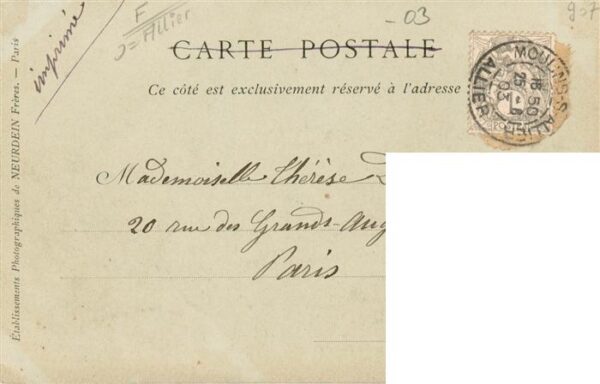 F
J= Allier
-03
9=7
imprimé
CARTE POSTALE
Ce côté est exclusivement réservé à l'adresse
MOULINS-S-ALLIER
16 50
25
03
ALLIER
Mademoiselle Thérèse
20 rue des Grands-Aug
Paris
Établissements Photographiques de NEURDEIN Frères. — Paris